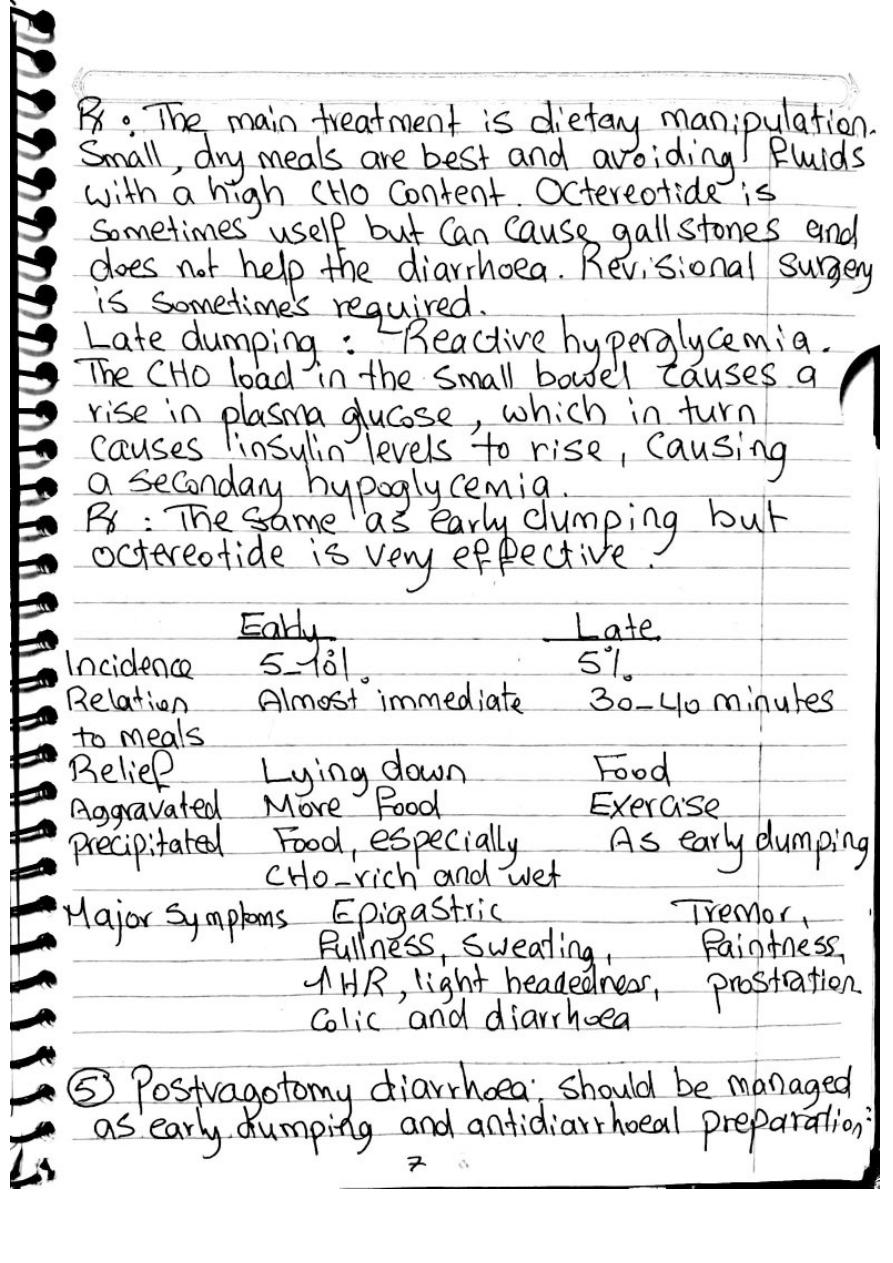 Rx : The main treatment is dietary manipulation.
Small, dry meals are best and avoiding fluids
with a high CHO Content. Octereotide is
Sometimes uself but can cause gallstones and
does not help the diarrhoea. Revisional surgery
is sometimes required.
Late dumping : Reactive hyperglycemia.
The CHO load in the small bowel causes a
rise in plasma glucose, which in turn
causes insulin levels to rise, causing
a secondary hypoglycemia.
Rx : The same as early dumping but
octereotide is very effective.
Early Late
Incidence 5-10% 5%
Relation Almost immediate 30-40 minutes
to meals
Relief Lying down Food
Aggravated More food Exercise
Precipitated Food, especially As early dumping
CHO-rich and wet
Major Symptoms Epigastric Tremor,
fullness, sweating, faintness,
↑HR, light headedness, prostration
colic and diarrhoea
⑤ Postvagotomy diarrhoea: should be managed
as early dumping and antidiarrhoeal preparation:
7